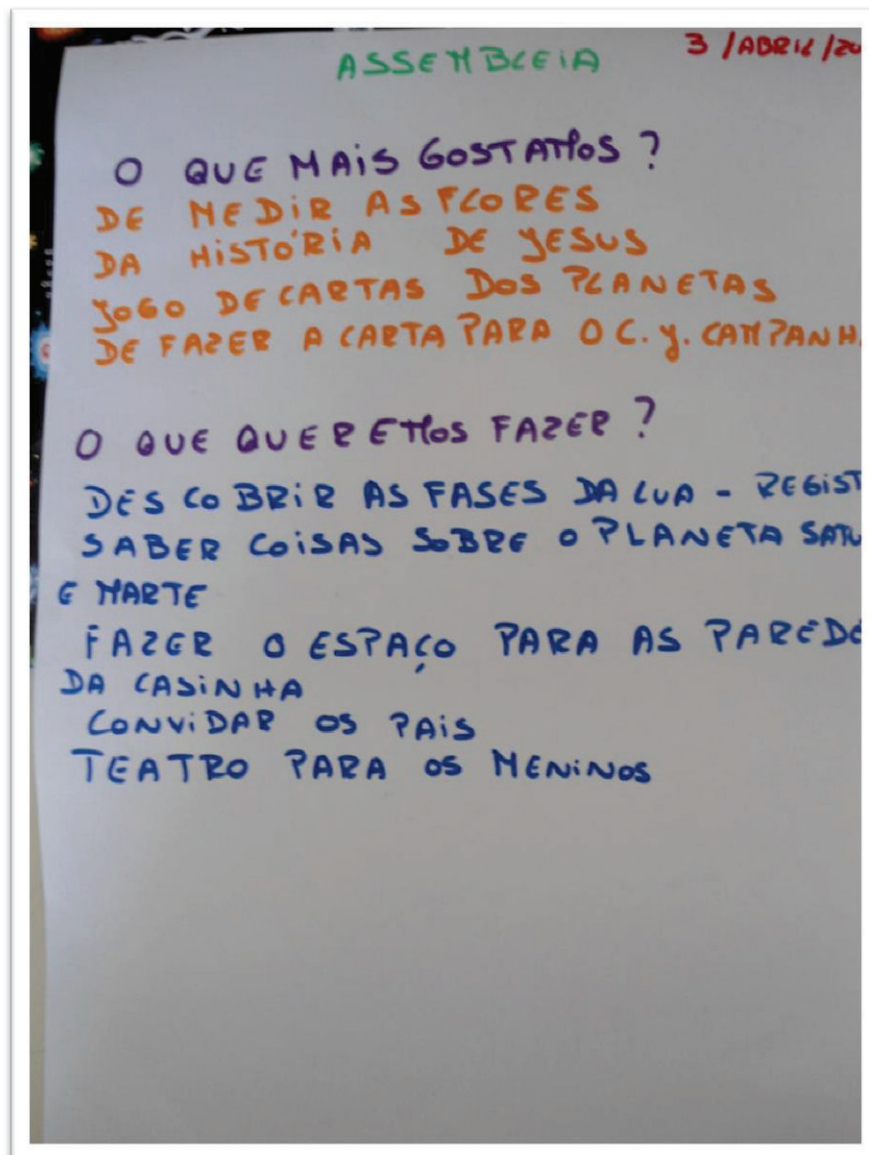 ASSEMBLEIA 3 /ABRIL/20
O QUE MAIS GOSTAMOS ?
DE MEDIR AS FLORES
DA HISTÓRIA DE JESUS
JOGO DE CARTAS DOS PLANETAS
DE FAZER A CARTA PARA O C. J. CAMPANH
O QUE QUEREMOS FAZER ?
DESCOBRIR AS FASES DA LUA - REGIST
SABER COISAS SOBRE O PLANETA SATU
E MARTE
FAZER O ESPAÇO PARA AS PAREDE
DA CASINHA
CONVIDAR OS PAIS
TEATRO PARA OS MENINOS